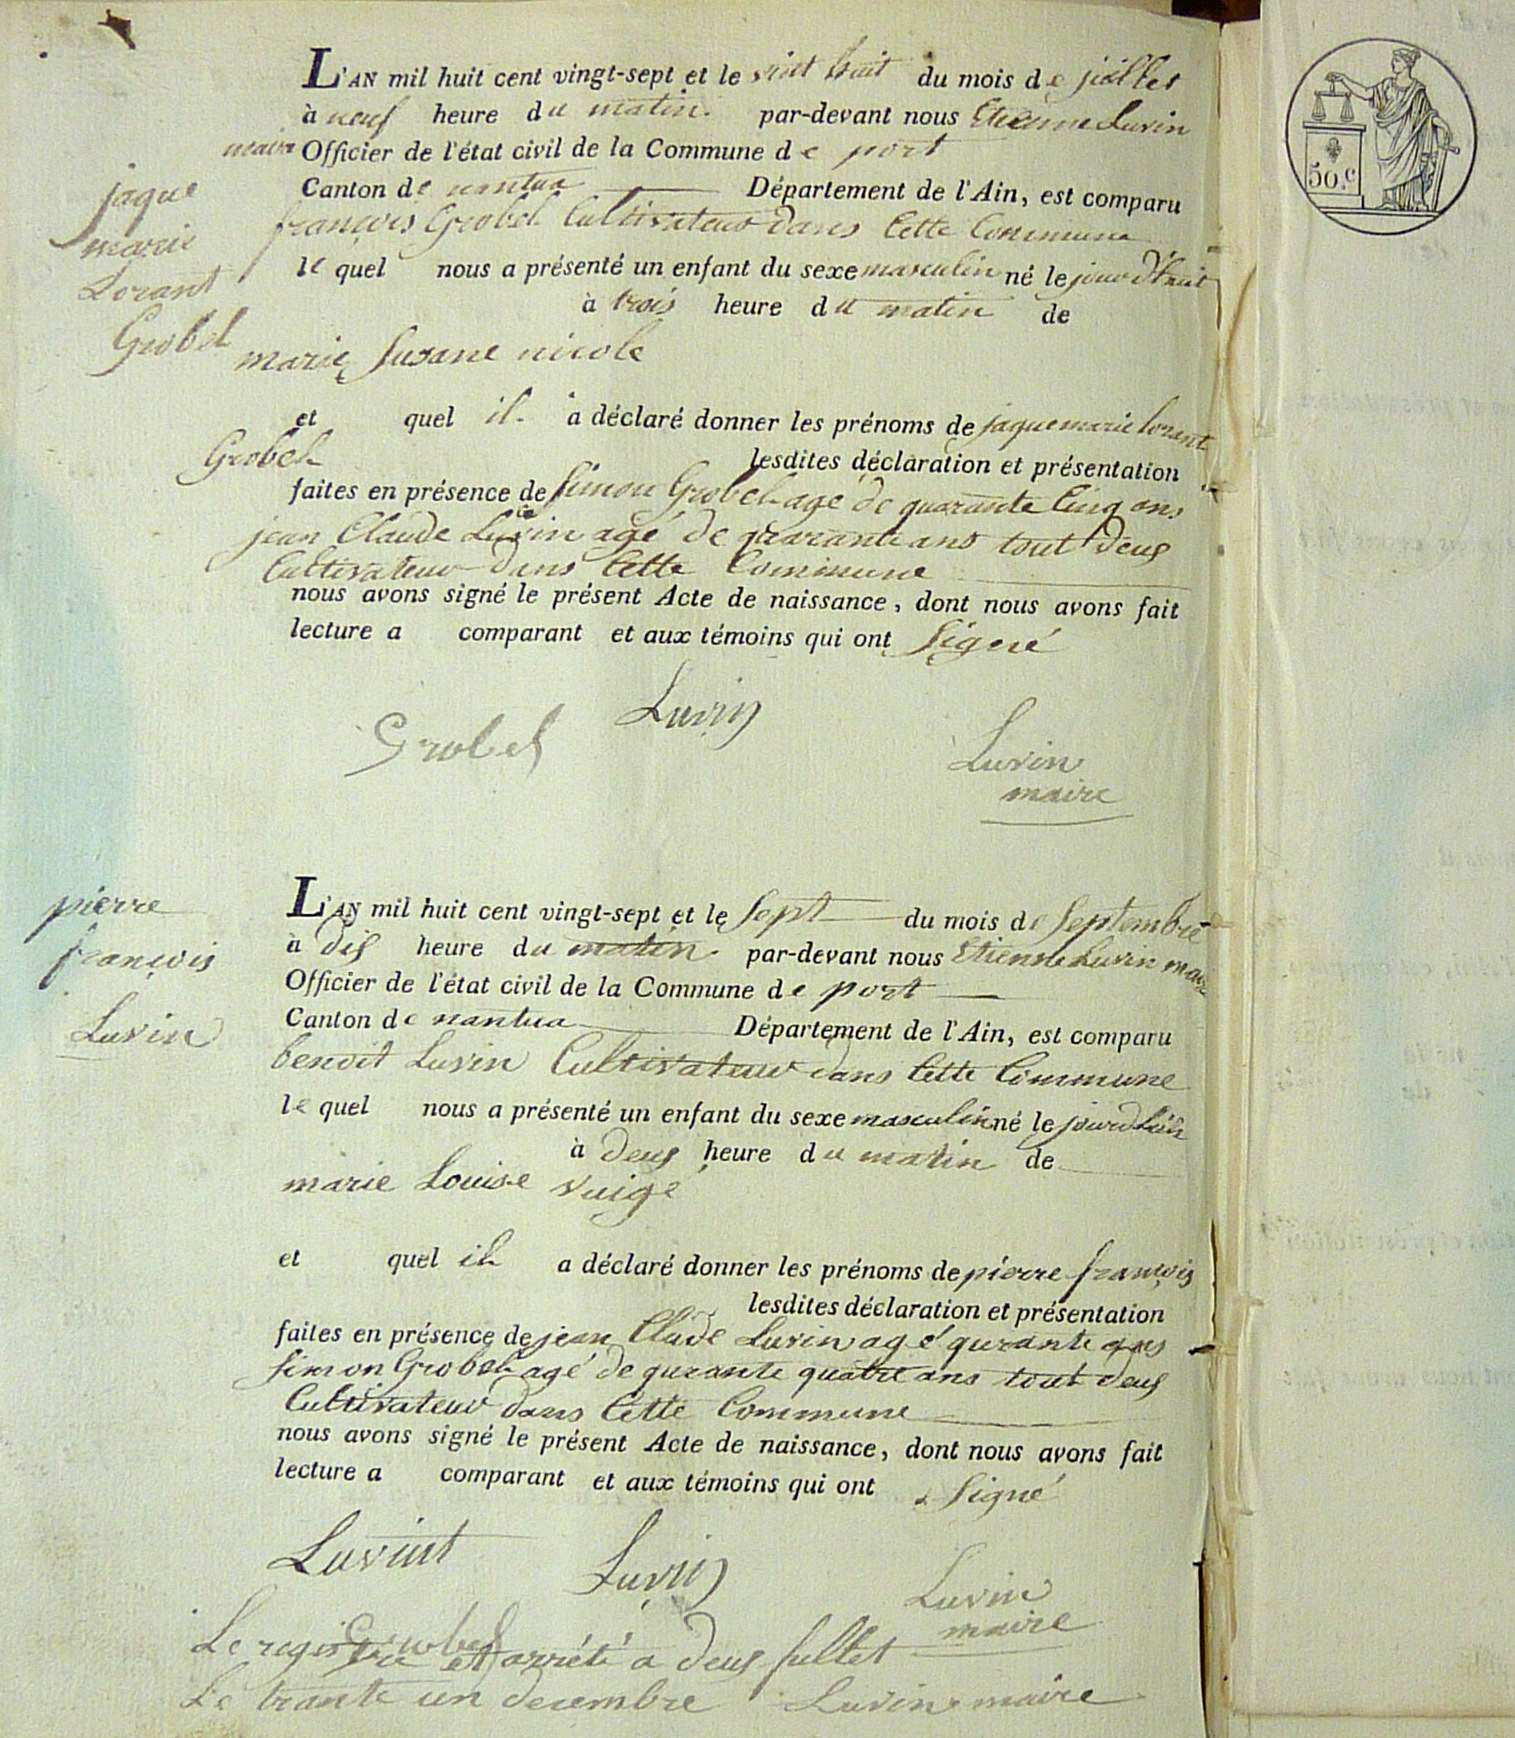 L'AN mil huit cent vingt-sept et le vint huit du mois de jüillet
à neuf heure du matin par-devant nous Etienne Luvin
maire Officier de l'état civil de la Commune de port
Canton de nantua Département de l'Ain, est comparu
françois Grobel Cultivateur dans Cette Commune
le quel nous a présenté un enfant du sexe masculin né le jour d'huit
à trois heure du matin de
marie Susane nicole
et quel il a déclaré donner les prénoms de jaque marie lorant
Grobel lesdites déclaration et présentation
faites en présence de Simon Grobel agé de quarante Cinq ans
jean Claude Luvin agé de quarante ans tout deus
Cultivateur dans Cette Commune
nous avons signé le présent Acte de naissance, dont nous avons fait
lecture a comparant et aux témoins qui ont Signé
jaque
marie
Lorant
Grobel
Grobel Luvin Luvin
maire
L'AN mil huit cent vingt-sept et le Sept du mois de Septembre
à dis heure du matin par-devant nous Etienne Luvin maire
Officier de l'état civil de la Commune de port
Canton de nantua Département de l'Ain, est comparu
benoit Luvin Cultivateur dans Cette Commune
le quel nous a présenté un enfant du sexe masculin né le
à deus heure du matin de
marie Louise
et quel il a déclaré donner les prénoms de pierre françois
lesdites déclaration et présentation
faites en présence de jean Clade Luvin agé qurante ans
Simon Grobel agé de qurante quatre ans tout deus
Cultivateur dans Cette Commune
nous avons signé le présent Acte de naissance, dont nous avons fait
lecture a comparant et aux témoins qui ont Signé
pierre
françois
Luvin
Luvint Luvin Luvin
Grobel maire
Le registre et arrété a deus fullet
Le trante un decembre Luvin maire
50.c